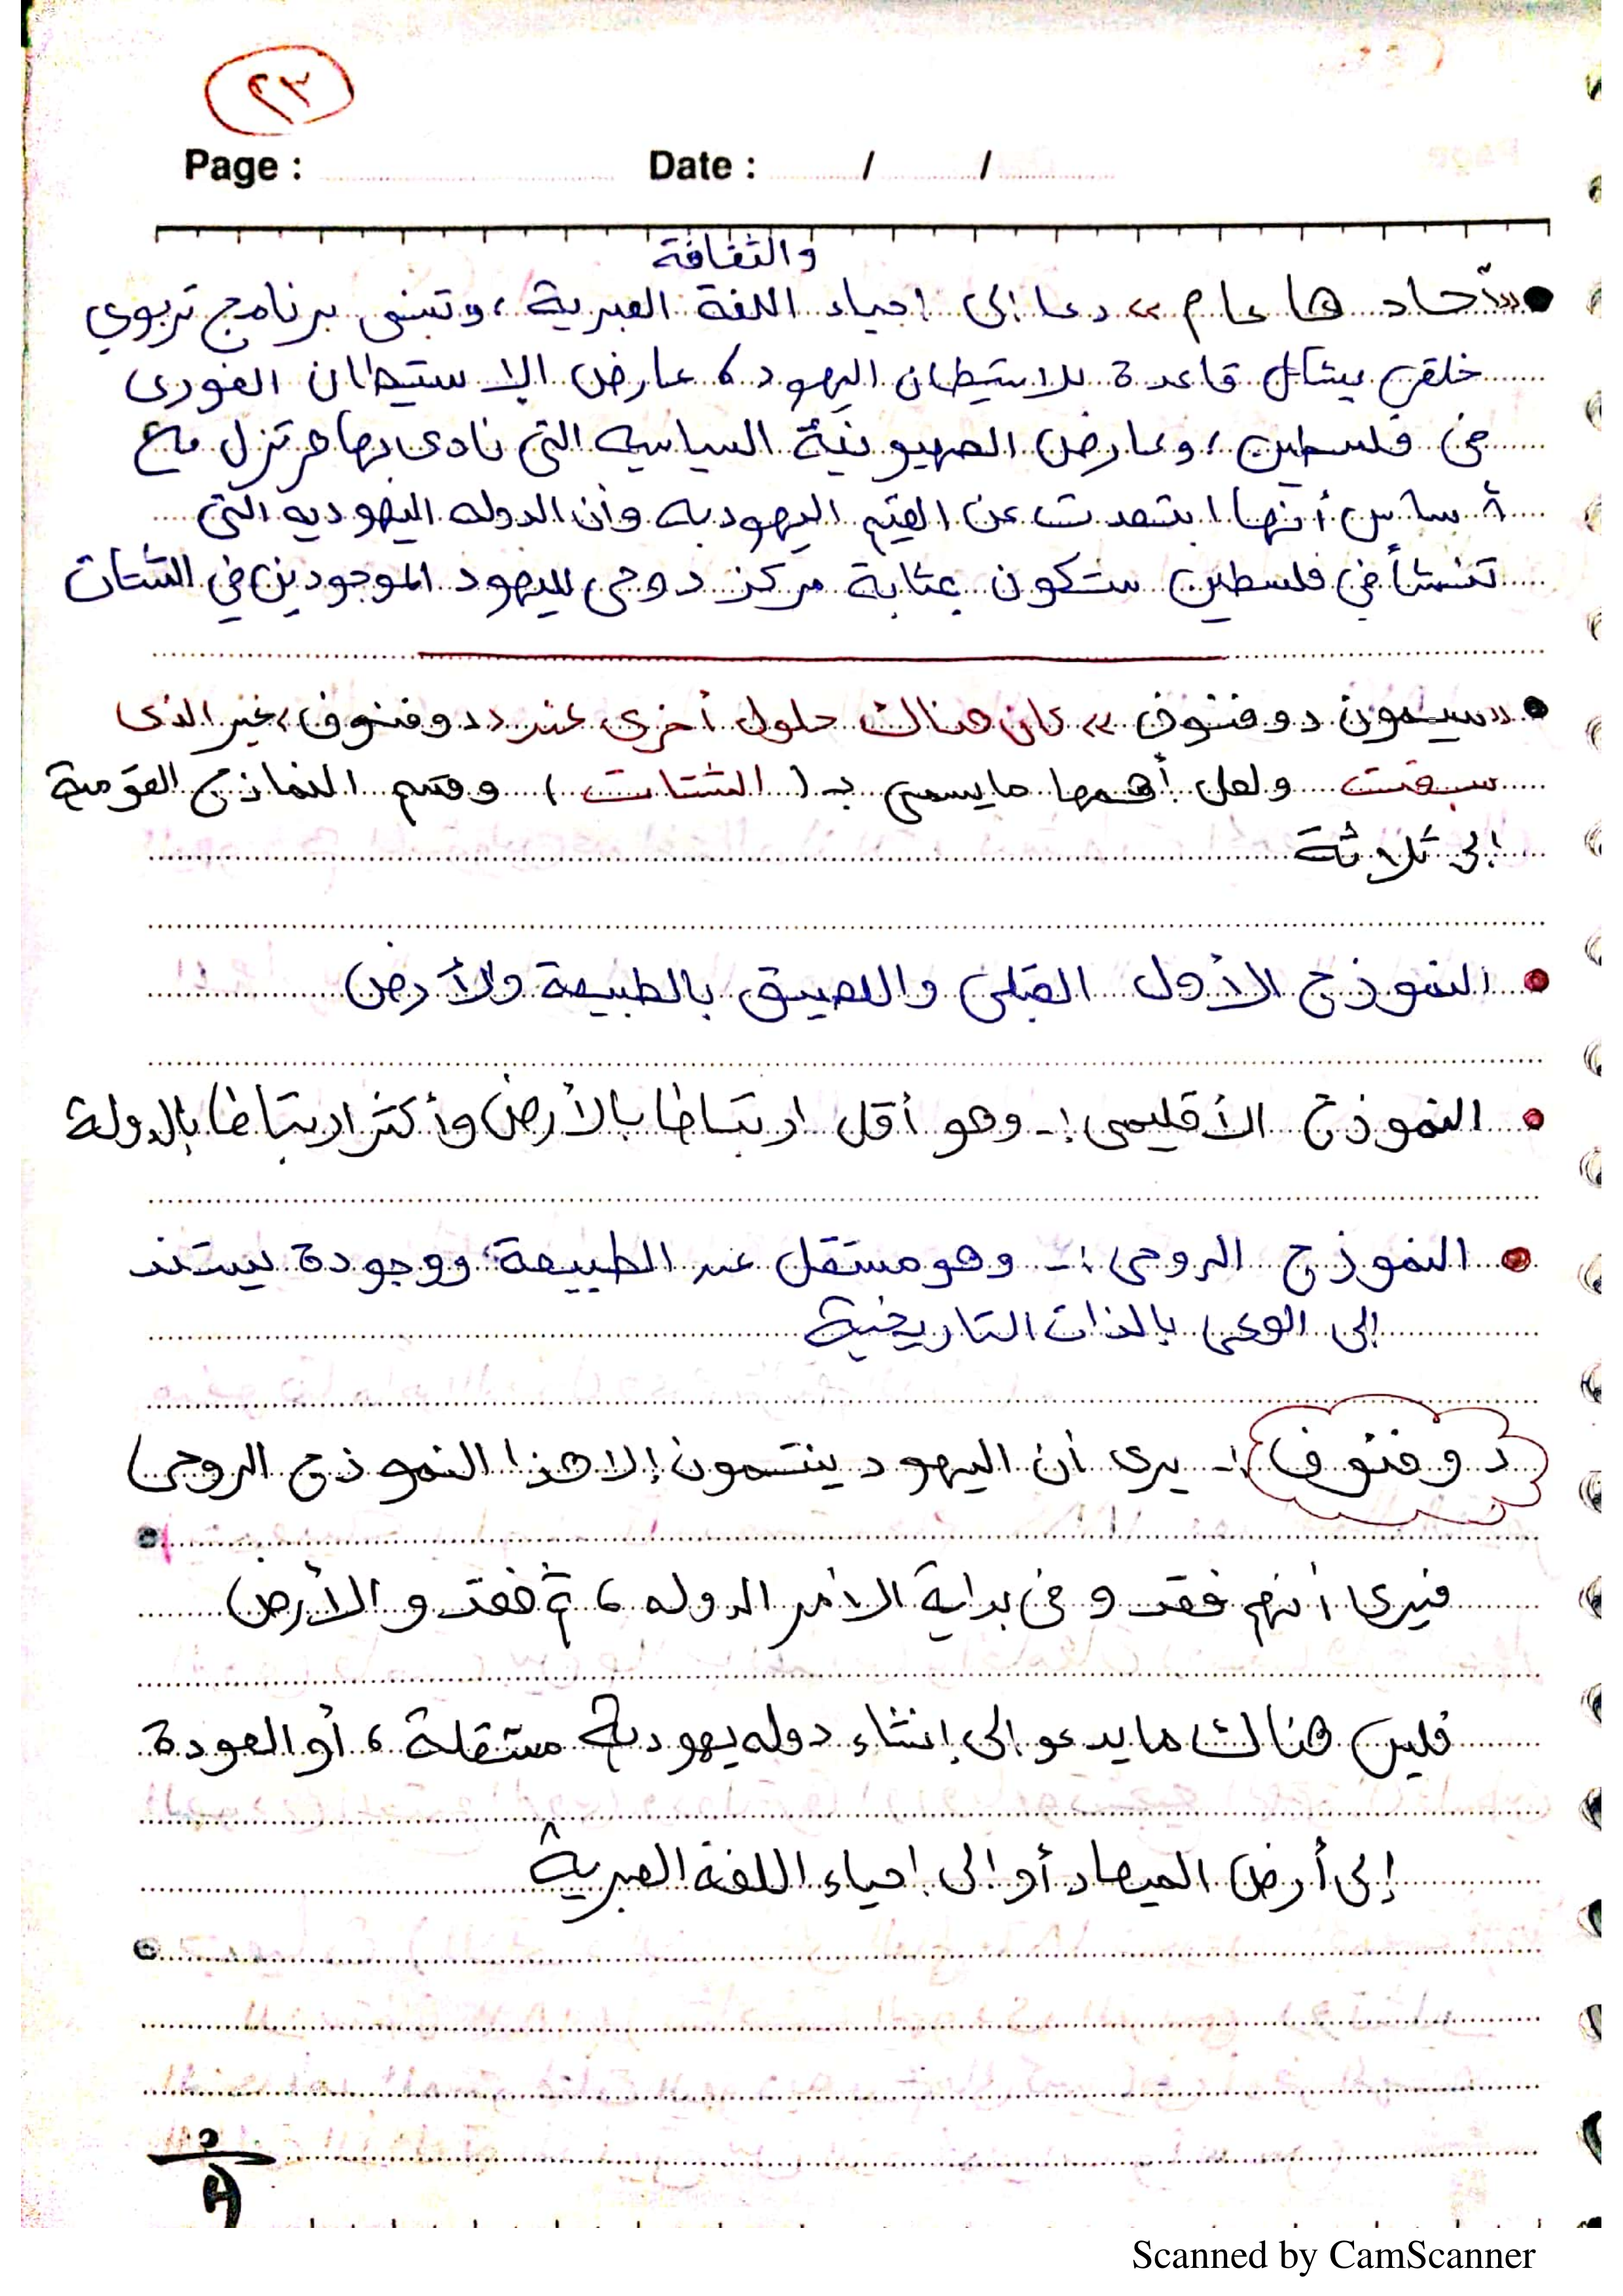 ٢٣
Page : Date : / /
والثقافة
● «آحاد ها عام» دعا إلى إحياء اللغة العبرية ، وتبنى برنامج تربوي
خلقي يشكل قاعدة للاستيطان اليهود ، عارض الاستيطان الفورى
فى فلسطين ، وعارض الصهيونية السياسيه التى نادى بها هرتزل مع
أساس أنها ابتعدت عن القيم اليهوديه وأن الدوله اليهوديه التى
تنشأ في فلسطين ستكون بمثابة مركز روحى لليهود الموجودين في الشتات
● «سيمون دوفنوف» كان هناك حلول أخرى عند «دوفنوف» غير الذى
سبقت ولعل أهمها مايسمى بـ (الشتات) وقسم النماذج القومية
إلى ثلاثة
● النموذج الأول القبلى واللصيق بالطبيعة والأرض
● النموذج الأقليمى :- وهو أقل ارتباطا بالأرض وأكثر ارتباطا بالدولة
● النموذج الروحى :- وهو مستقل عن الطبيعة ووجودة يستند
إلى الوعى بالذات التاريخية
دوفنوف :- يرى أن اليهود ينتمون إلا هذا النموذج الروحى)
فيرى أنهم فقدو فى بداية الأمر الدوله ، ثم فقدو الأرض
فليس هناك مايدعو إلى إنشاء دوله يهودية مستقلة ، أو العودة
إلى أرض الميعاد أو إلى إحياء اللغة العبرية
Scanned by CamScanner